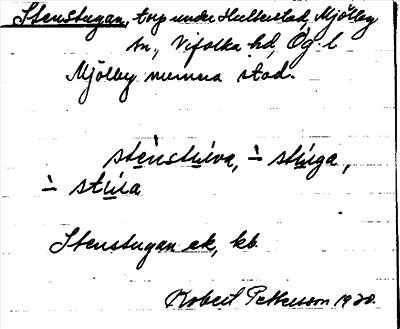 Stenstugan, torp under Hulterstad, Mjölby
sn., Vifolka hd, Ög. l
Mjölby numera stad.
stènstùva, ÷ stùga,
÷ stùa
Stenstugan ek, kb.
Robert Pettersson 1920.